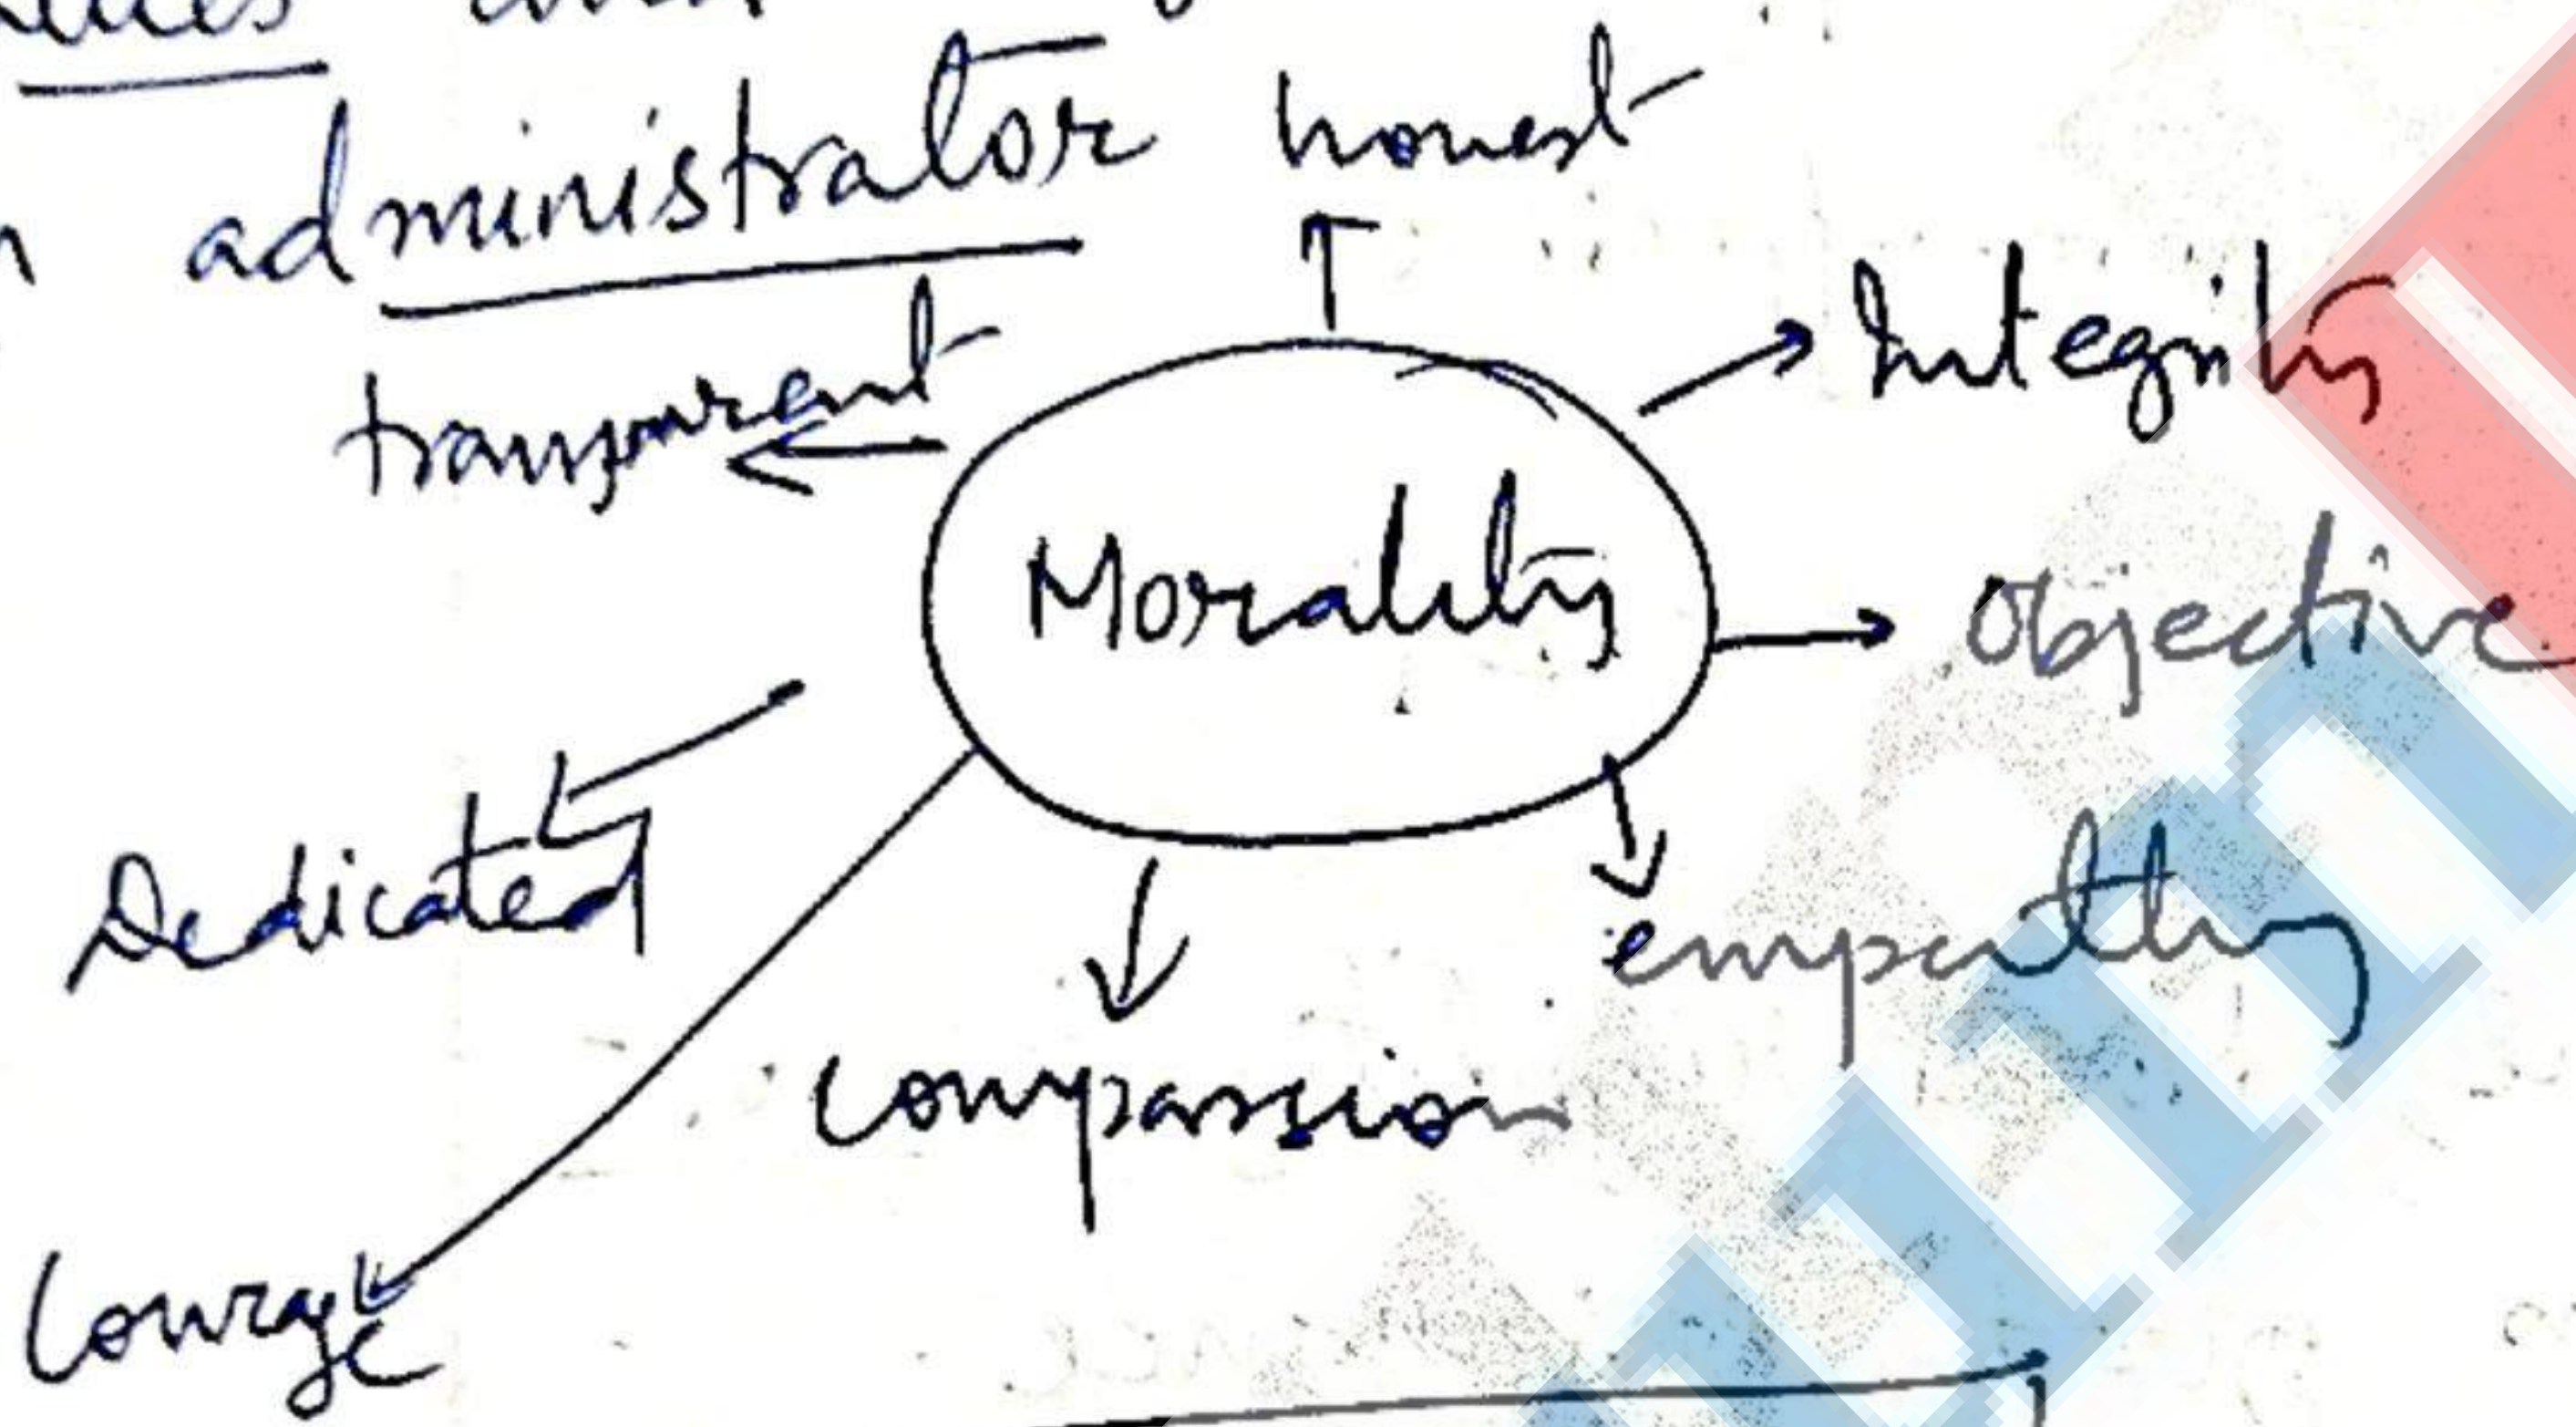 administrator
honest
Integrity
transparent
Morality
Objective
Dedicated
empathy
compassion
Courage